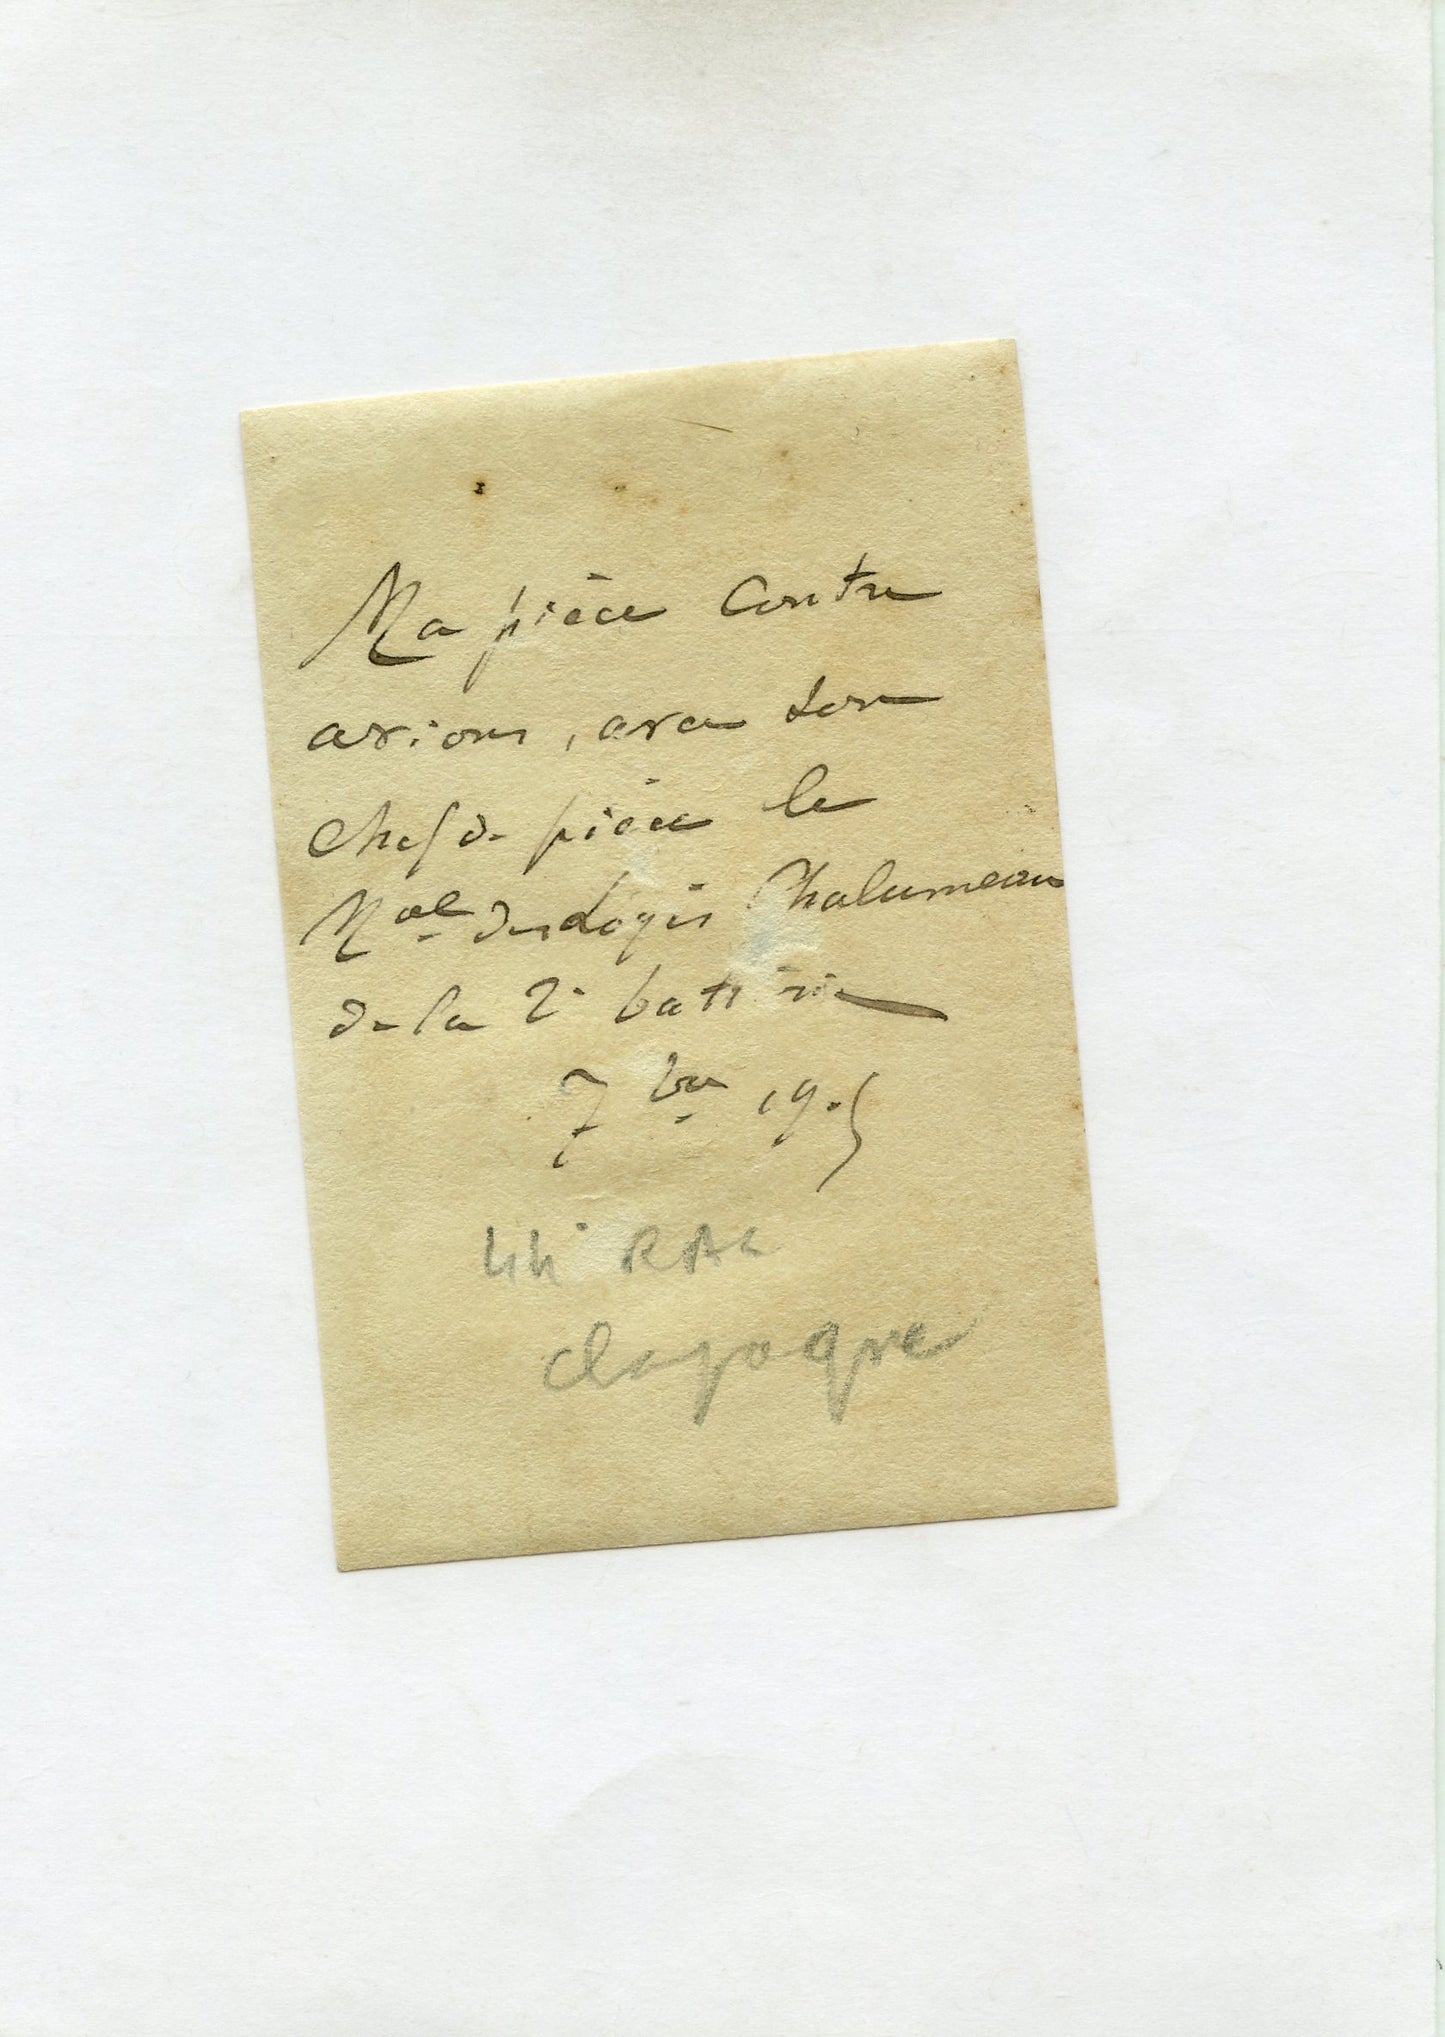 Ma pièce contre
avions, avec son
chef de pièce le
Mal des Logis Chalumeau
de la 2e batterie
7bre 1915
44e RAC